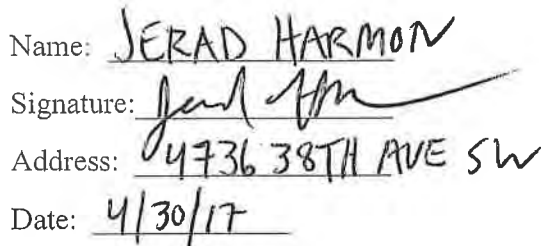 Name: JERAD HARMON
Signature:
Address: 4736 38TH AVE SW
Date: 4/30/17